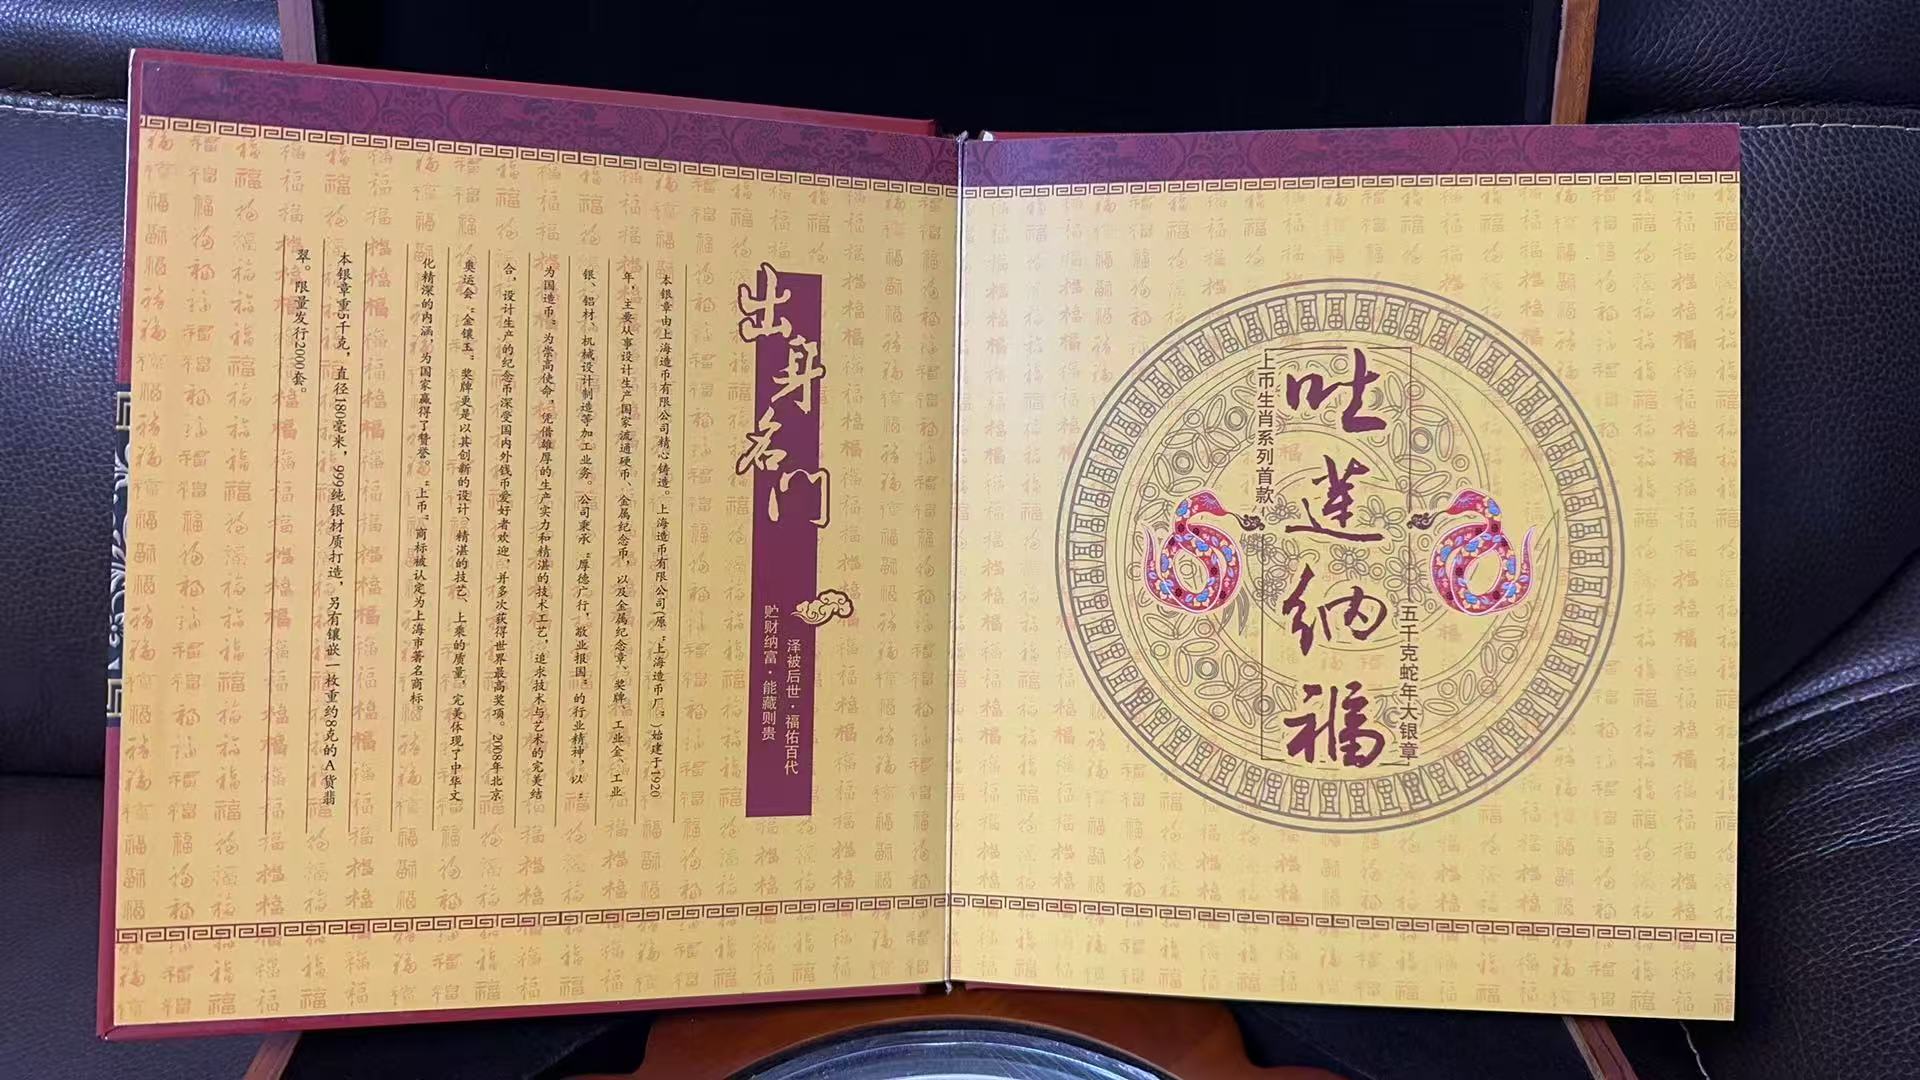 吐莲纳福
上币生肖系列首款
五千克蛇年大银章
出身名门
泽被后世·福佑百代
贮财纳富·能藏则贵
本银章由上海造币有限公司精心铸造。上海造币有限公司(原“上海造币厂”)始建于1920
年，主要从事设计生产国家流通硬币、金属纪念币，以及金属纪念章、奖牌、工业金、工业
银、铝材、机械设计制造等加工业务。公司秉承“厚德广行，敬业报国”的行业精神，以“
为国造币”为崇高使命，凭借雄厚的生产实力和精湛的技术工艺，追求技术与艺术的完美结
合，设计生产的纪念币深受国内外钱币爱好者欢迎，并多次获得世界最高奖项。2008年北京
奥运会“金镶玉”奖牌更是以其创新的设计、精湛的技艺、上乘的质量，完美体现了中华文
化精深的内涵，为国家赢得了赞誉。“上币”商标被认定为上海市著名商标。
本银章重5千克，直径180毫米，999纯银材质打造，另有镶嵌一枚重约8克的A货翡
翠。限量发行2000套。